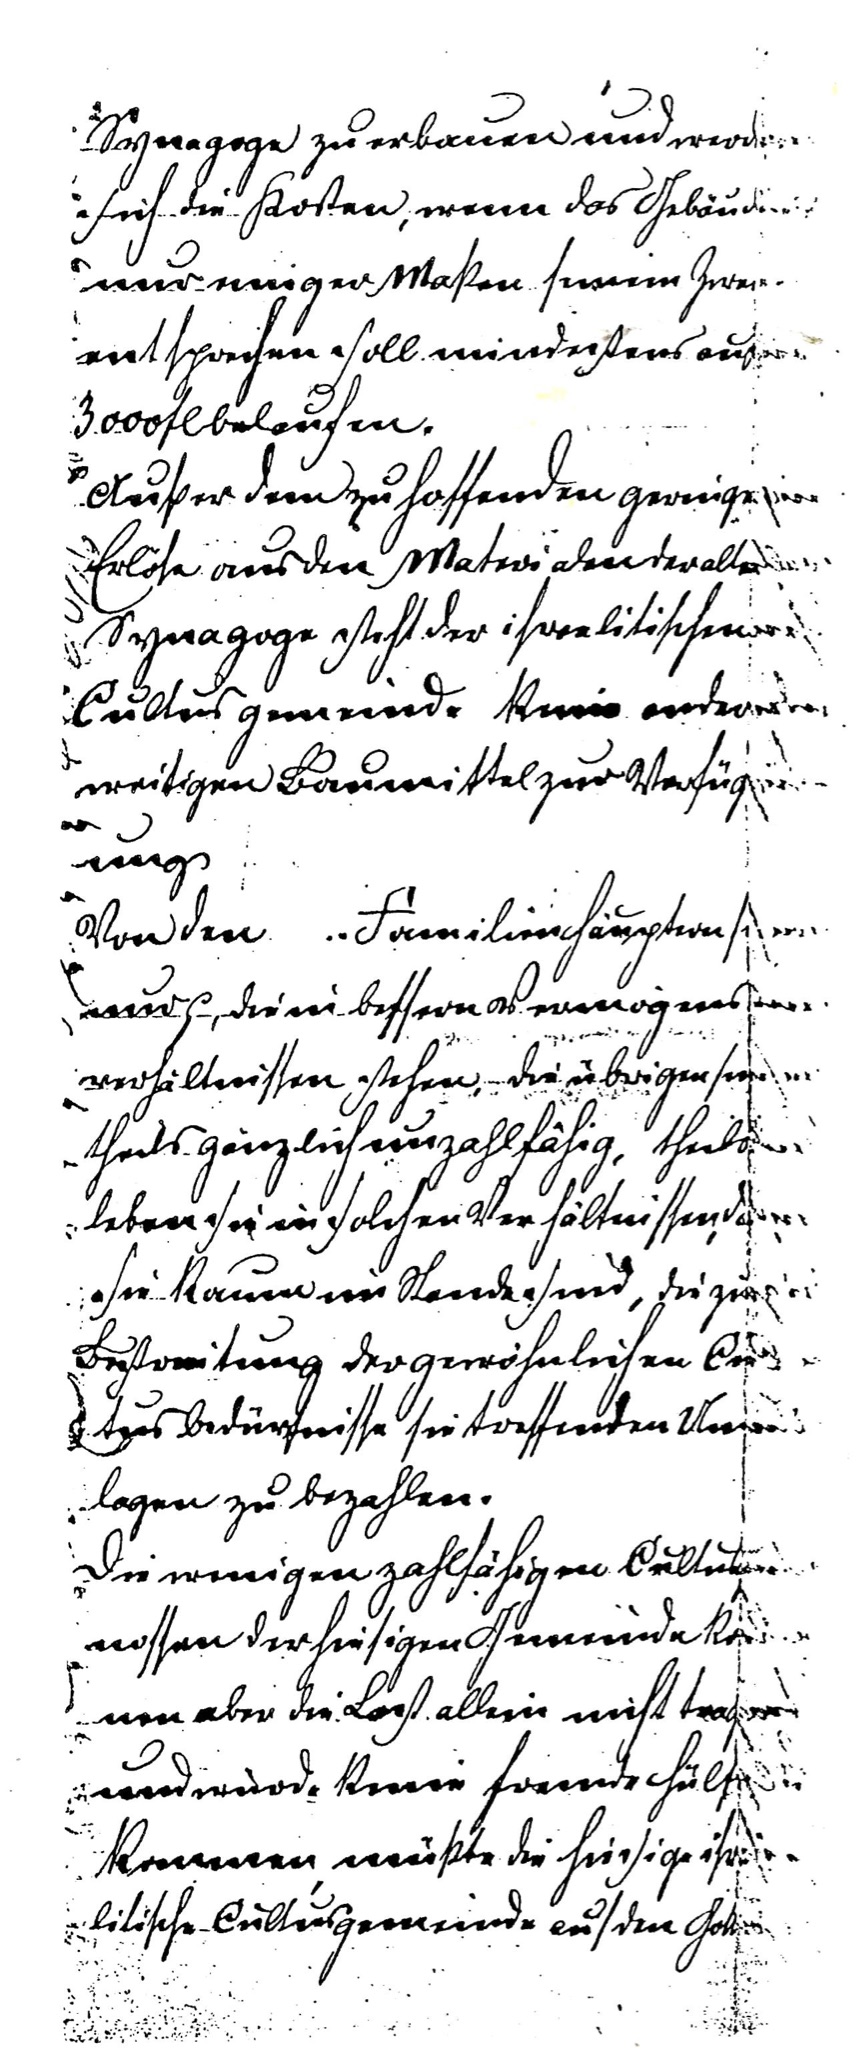 Synagoge zu erbauen und werden
sich die Kosten, wenn das Gebäude
nur einiger Maßen seinem Zwec
entsprechen soll mindestens auf
3000 fl belaufen.
Außer dem zu hoffenden geringen
Erlöse aus den Materialen der alten
Synagoge steht der israelitischen
Cultusgemeinde keine ander
weitigen Baumittel zur Verfüg
ung
Von den .. Familienhäuptern sind
nur, die in bessern Vermögens
verhältnissen stehen, die übrigen sind
theils gänzlich unzahlfähig, theils
leben sie in solchen Verhältnissen, daß
sie kaum im Stande sind, die zur
Bestreitung der gewöhnlichen Cul
tus bedürfnisse sie treffenden Um
lagen zu bezahlen.
Die wenigen zahlfähigen Cultusge
nossen der hiesigen Gemeinde kön
nen aber die Last allein nicht tragen
und würde keine fremde Hülfe
kommen, müßte die hiesige isra
litische Cultusgemeinde auf den